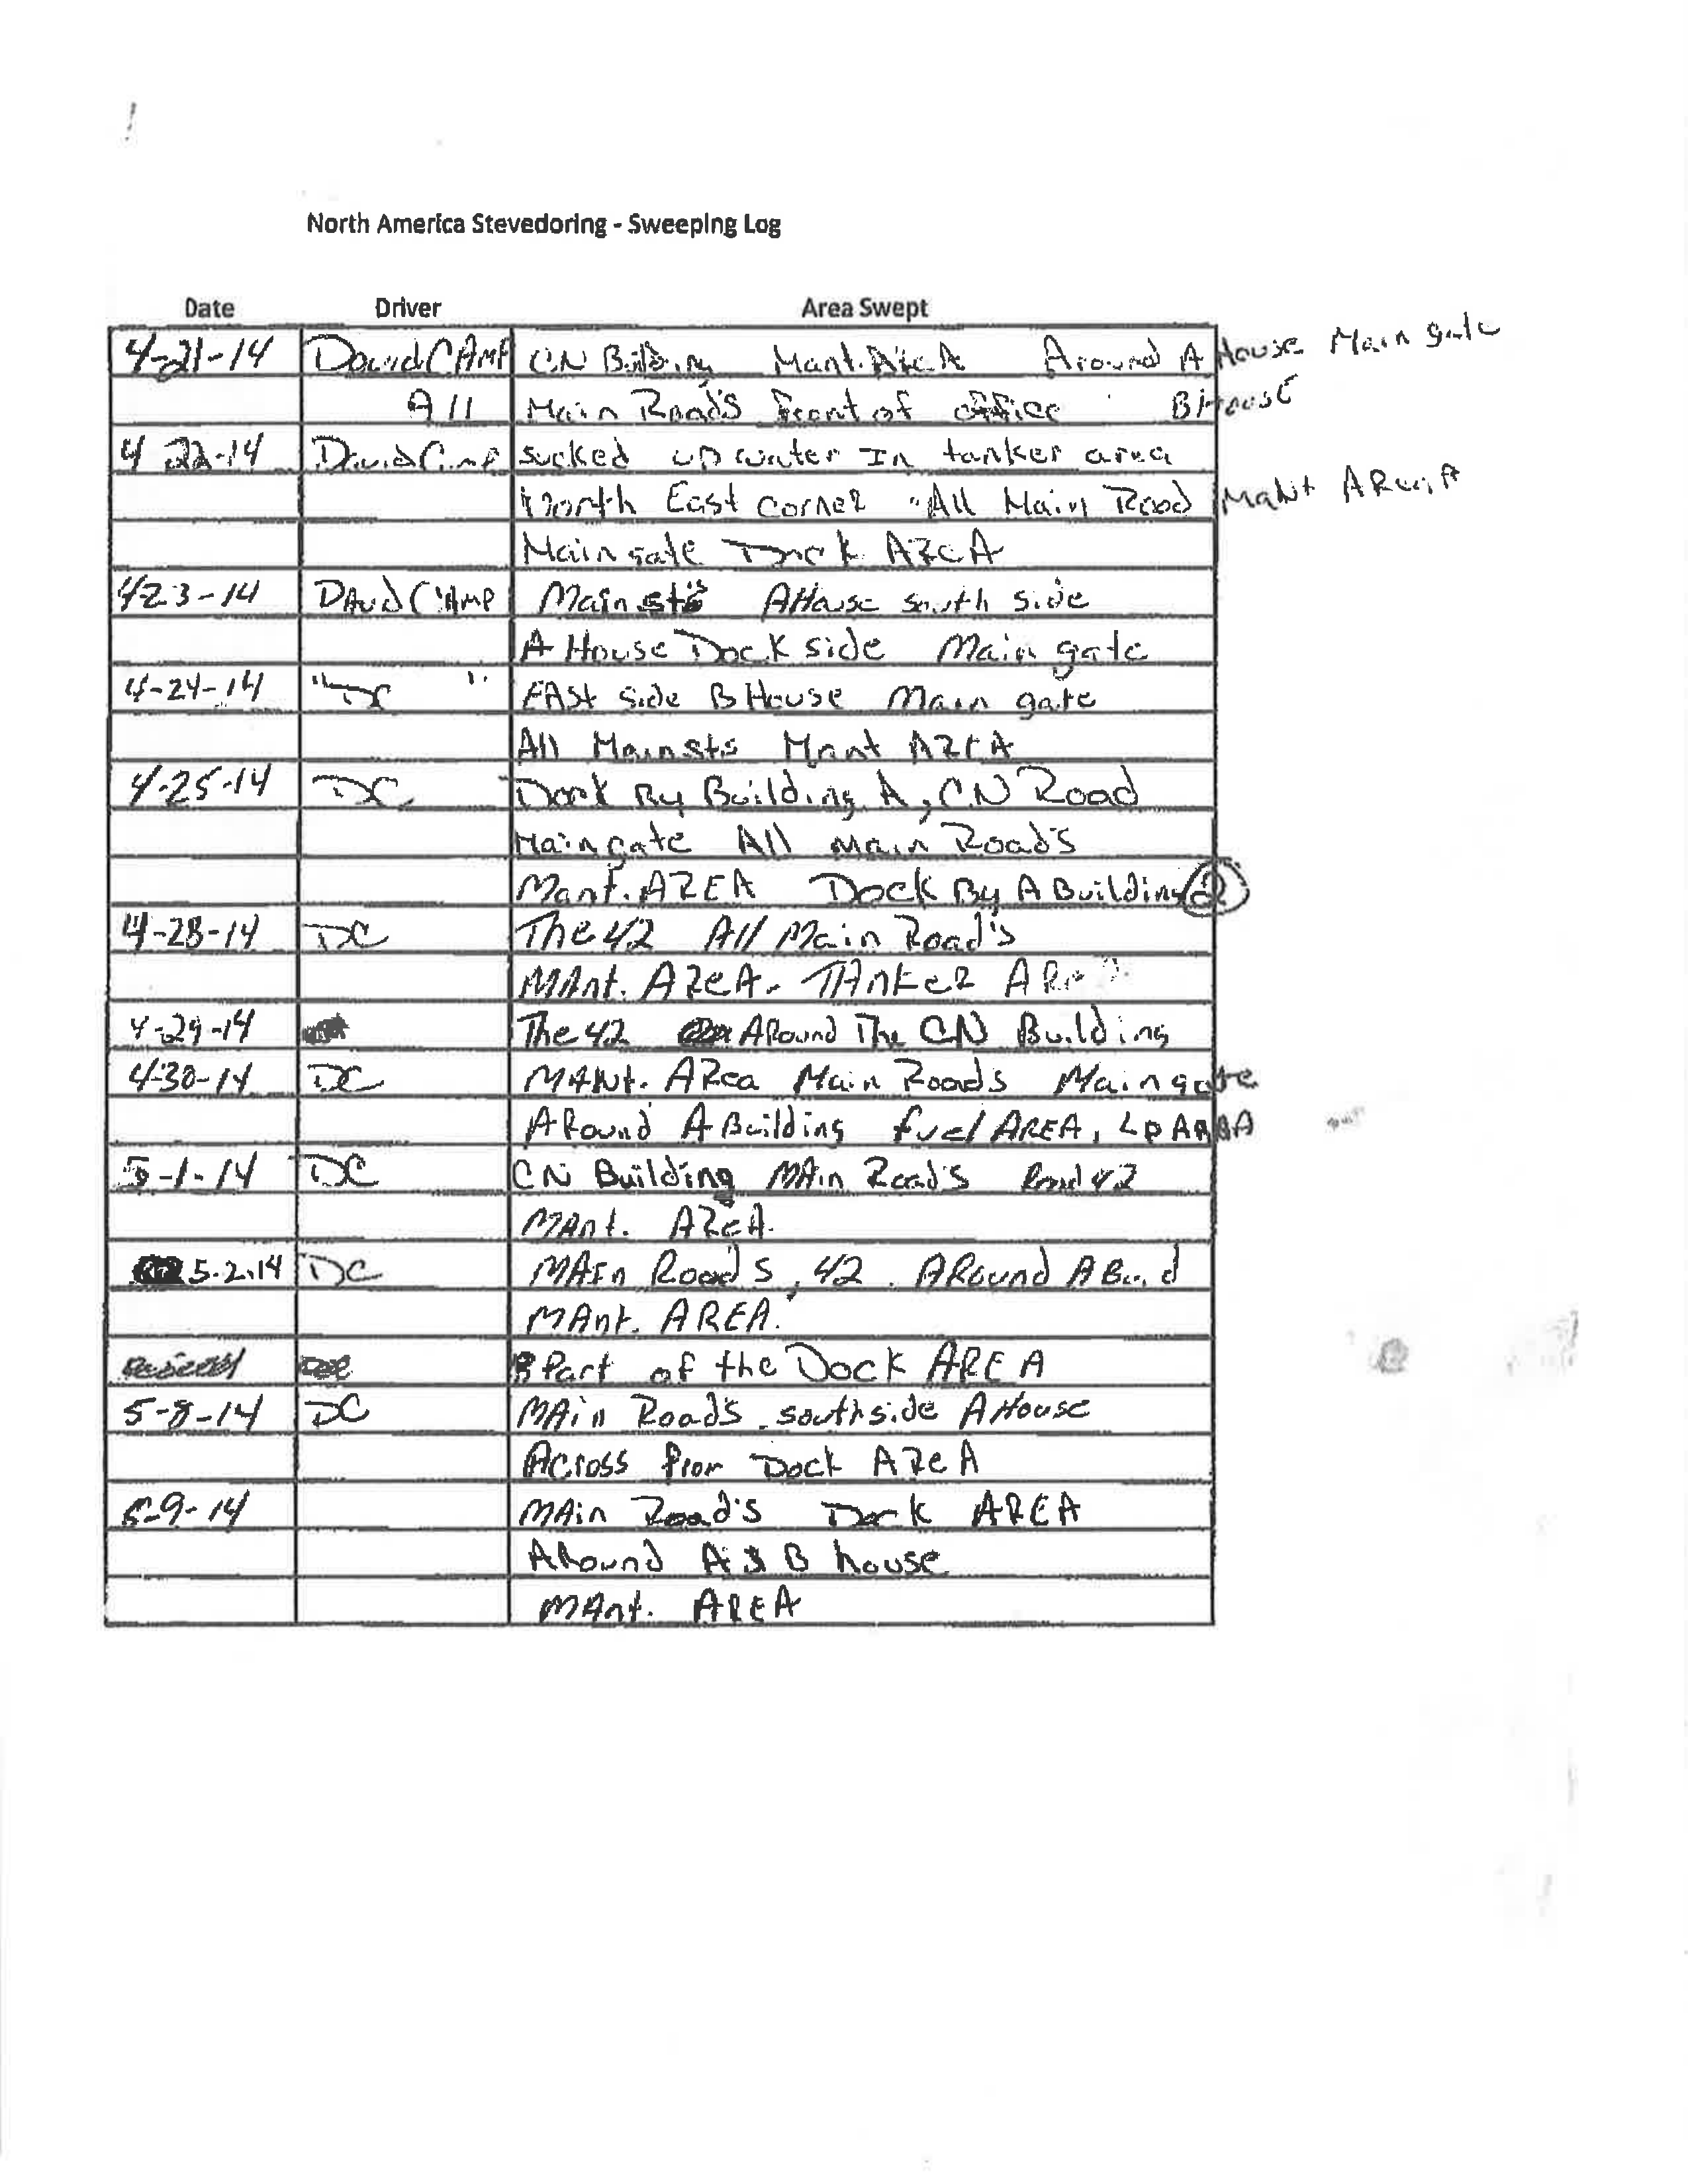 North America Stevedoring - Sweeping Log
Date Driver Area Swept
4-21-14 David CAmp CN Building Mant. AreA Around A House Main gate
All Main Road's front of office BHouse
4 22-14 David Camp sucked up water In tanker area
North East corner All Main Road Mant AReA
Main gate Dock AReA
4-23-14 DAvid CAmp Main sts AHouse south side
A House Dock side Main gate
4-24-14 "DC" EAst side B House Main gate
All Main sts Mant AReA
4-25-14 DC Dock By Building A, CN Road
Main gate All Main Road's
Mant. AREA Dock By A Building 2
4-28-14 DC The 42 All Main Road's
MAnt. AReA. TAnker
4-29-14 The 42 ARound The CN Building
4-30-14 DC MANt. ARea Main Roads Main gate
ARound A Building fuel AREA, LP AREA
5-1-14 DC CN Building MAin Road's Road 42
MAnt. AReA.
5.2.14 DC MAin Road's, 42. ARound A Buid
MAnt. AREA.
Part of the Dock AREA
5-8-14 DC MAin Road's southside AHouse
Across from Dock AReA
5-9-14 MAin Road's Dock AREA
ARound A & B house
MAnt. AREA